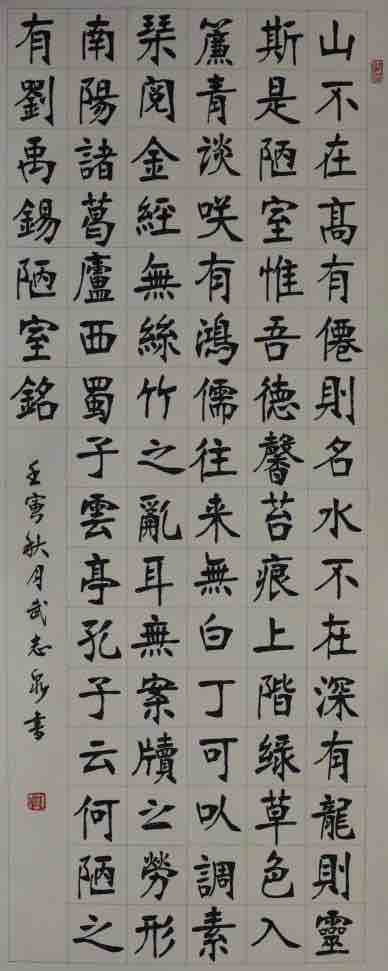 山不在高有僊則名水不在深有龍則靈
斯是陋室惟吾德馨苔痕上階緑草色入
簾青談咲有鴻儒往来無白丁可以調素
琹閲金經無絲竹之亂耳無案牘之勞形
南陽諸葛廬西蜀子雲亭孔子云何陋之
有劉禹錫陋室銘
壬寅秋月武志泉書